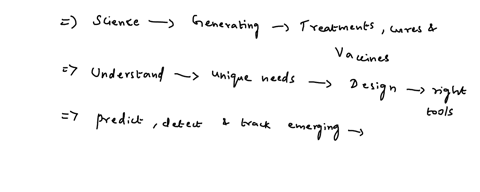 =) Science → Generating → Treatments, cures &
Vaccines
=> Understand → unique needs → Design → right
tools
=> predict, detect & track emerging →